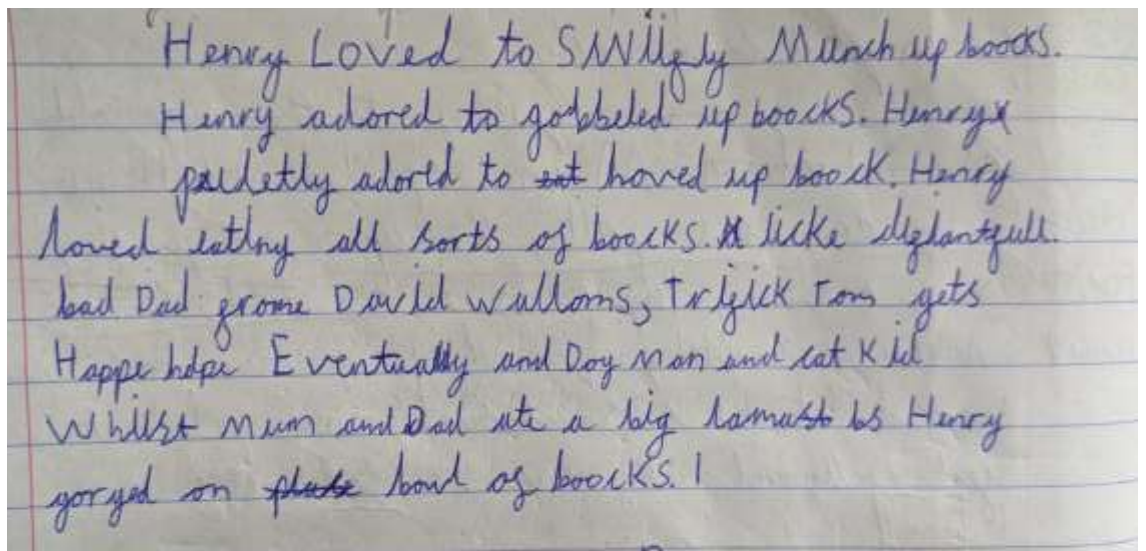 Henry Loved to SWiigly Munch up boocks.
Henry adored to gobbeled up boocks. Henry
adored to hoved up boock. Henry
loved eating all sorts of boocks. licke
bad Dad frome David Wulloms, Tom gets
Happe Eventually and Dog Man and cat Kid
Whilst Mum and Dad ate a big Henry
gorged on bowl of boocks.